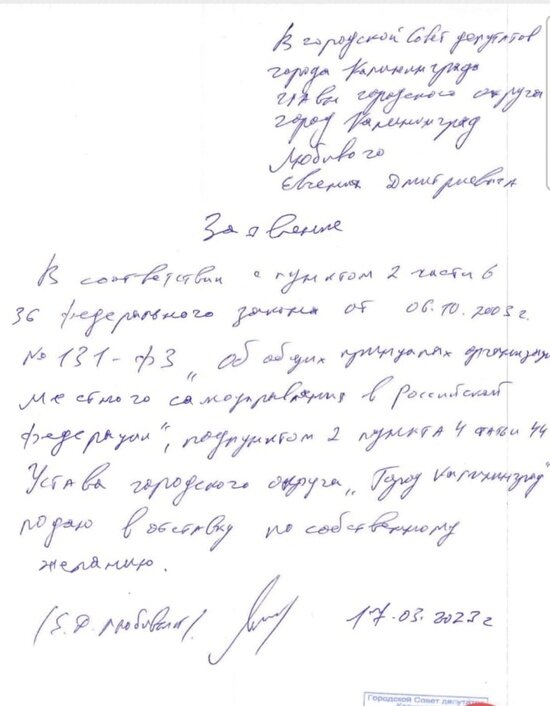 В городской Совет депутатов
города Калининграда
главы городского округа
город Калининград
Любивого
Евгения Дмитриевича
Заявление
В соответствии с пунктом 2 части 6
36 федерального закона от 06.10.2003 г.
№ 131-ФЗ „Об общих принципах организации
местного самоуправления в Российской
Федерации“, подпунктом 2 пункта 4 статьи 44
Устава городского округа „Город Калининград“
подаю в отставку по собственному
желанию.
/Е.Д. Любивый/ 17.03.2023 г
Городской Совет депутатов